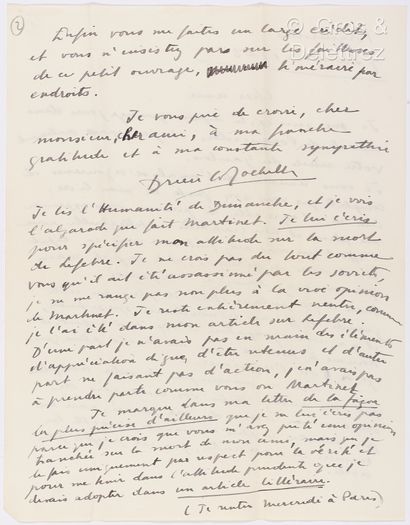 2
Enfin vous me faites un large crédit,
et vous n'insistez pas sur les faiblesses
de ce petit ouvrage, téméraire par
endroits.
Je vous prie de croire, cher
monsieur, cher ami, à ma franche
gratitude et à ma constante sympathie
Drieu la Rochelle
Je lis l'Humanité de Dimanche, et je vois
l'algarade que fait Martinet. Je lui écris
pour spécifier mon attitude sur la mort
de Lefebvre. Je ne crois pas du tout comme
vous qu'il ait été assassiné par les soviets,
je ne me range pas non plus à la opinion
de Martinet. Je reste entièrement neutre, comme
je l'ai été dans mon article sur Lefebvre.
D'une part je n'avais pas en main des éléments
d'appréciation dignes d'être retenus et d'autre
part ne faisant pas d'action, je n'avais pas
à prendre parti comme vous ou Martinet.
Je marque dans ma lettre de la façon
la plus précise d'ailleurs que je ne lui écris pas
parce que je crois que vous m'avez prêté une opinion
tranchée sur la mort de mon ami, mais que je
le fais uniquement par respect pour la vérité et
pour me tenir dans l'attitude prudente que je
devais adopter dans un article littéraire.
(Je rentre mercredi à Paris)
© Gros &
Delettrez